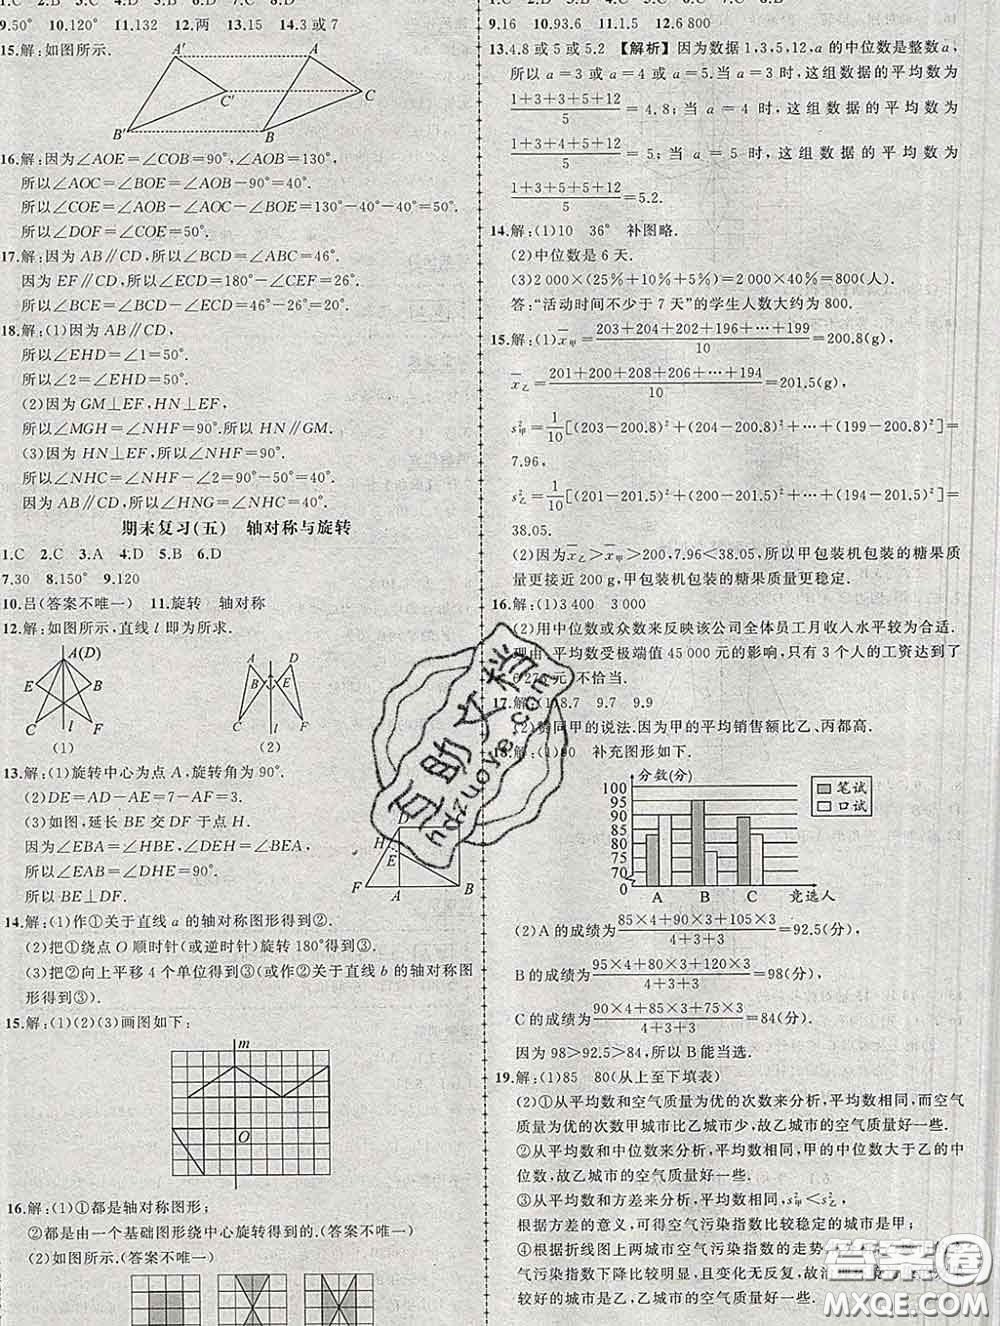 9.50° 10.120° 11.132 12.两 14.3或7
15.解:如图所示.
A′ A
C′ C
B′ B
16.解:因为∠AOE=∠COB=90°,∠AOB=130°,
所以∠AOC=∠BOE=∠AOB-90°=40°.
所以∠COE=∠AOB-∠AOC-∠BOE=130°-40°-40°=50°.
所以∠DOF=∠COE=50°.
17.解:因为AB∥CD,所以∠BCD=∠ABC=46°.
因为EF∥CD,所以∠ECD=180°-∠CEF=26°.
所以∠BCE=∠BCD-∠ECD=46°-26°=20°.
18.解:(1)因为AB∥CD,
所以∠EHD=∠1=50°.
所以∠2=∠EHD=50°.
(2)因为GM⊥EF,HN⊥EF,
所以∠MGH=∠NHF=90°.所以HN∥GM.
(3)因为HN⊥EF,所以∠NHF=90°.
所以∠NHC=∠NHF-∠2=90°-50°=40°.
因为AB∥CD,所以∠HNG=∠NHC=40°.
期末复习(五) 轴对称与旋转
1.C 2.C 3.A 4.D 5.B 6.D
7.30 8.150° 9.120
10.吕(答案不唯一) 11.旋转 轴对称
12.解:如图所示,直线l即为所求.
A(D) A D
E B B E
C l F C l F
(1) (2)
13.解:(1)旋转中心为点A,旋转角为90°.
(2)DE=AD-AE=7-AF=3.
(3)如图,延长BE交DF于点H.
因为∠EBA=∠HBE,∠DEH=∠BEA,
所以∠EAB=∠DHE=90°.
所以BE⊥DF.
D
H
E
F A B
14.解:(1)作①关于直线a的轴对称图形得到②.
(2)把①绕点O顺时针(或逆时针)旋转180°得到③.
(3)把②向上平移4个单位得到③(或作②关于直线b的轴对称图
形得到③).
15.解:(1)(2)(3)画图如下:
m
O
16.解:(1)①都是轴对称图形;
②都是由一个基础图形绕中心旋转得到的.(答案不唯一)
(2)如图所示.(答案不唯一)
9.16 10.93.6 11.1.5 12.6 800
13.4.8或5或5.2 【解析】因为数据1,3,5,12,a的中位数是整数a,
所以a=3或a=4或a=5.当a=3时,这组数据的平均数为
(1+3+3+5+12)/5=4.8;当a=4时,这组数据的平均数为
(1+3+4+5+12)/5=5;当a=5时,这组数据的平均数为
(1+3+5+5+12)/5=5.2.
14.解:(1)10 36° 补图略.
(2)中位数是6天.
(3)2 000×(25%+10%+5%)=2 000×40%=800(人).
答:“活动时间不少于7天”的学生人数大约为800.
15.解:(1)x̄甲=(203+204+202+196+…+199)/10=200.8(g),
x̄乙=(201+200+208+206+…+194)/10=201.5(g),
s²甲=1/10[(203-200.8)²+(204-200.8)²+…+(199-200.8)²]=
7.96,
s²乙=1/10[(201-201.5)²+(200-201.5)²+…+(194-201.5)²]=
38.05.
(2)因为x̄乙>x̄甲>200,7.96<38.05,所以甲包装机包装的糖果质
量更接近200 g,甲包装机包装的糖果质量更稳定.
16.解:(1)3 400 3 000
(2)用中位数或众数来反映该公司全体员工月收入水平较为合适.
理由:平均数受极端值45 000元的影响,只有3个人的工资达到了
6 276元,不恰当.
17.解:(1)8.7 9.7 9.9
(2)赞同甲的说法.因为甲的平均销售额比乙、丙都高.
18.解:(1)90 补充图形如下.
分数(分)
100
95
90
85
80
75
70
0
A B C 竞选人
笔试
口试
(2)A的成绩为(85×4+90×3+105×3)/(4+3+3)=92.5(分),
B的成绩为(95×4+80×3+120×3)/(4+3+3)=98(分)
C的成绩为(90×4+85×3+75×3)/(4+3+3)=84(分).
因为98>92.5>84,所以B能当选.
19.解:(1)85 80(从上至下填表)
(2)①从平均数和空气质量为优的次数来分析,平均数相同,而空气
质量为优的次数甲城市比乙城市少,故乙城市的空气质量好一些.
②从平均数和中位数来分析,平均数相同,甲的中位数大于乙的中
位数,故乙城市的空气质量好一些.
③从平均数和方差来分析,平均数相同,s²甲<s²乙,
根据方差的意义,可得空气污染指数比较稳定的城市是甲;
④根据折线图上两城市空气污染指数的走势
气污染指数下降比较明显,且变化无反复,故治
较好的城市是乙,乙城市的空气质量好一些.
百助文档
ydzuoye.com
答案圈
MXQE.COM